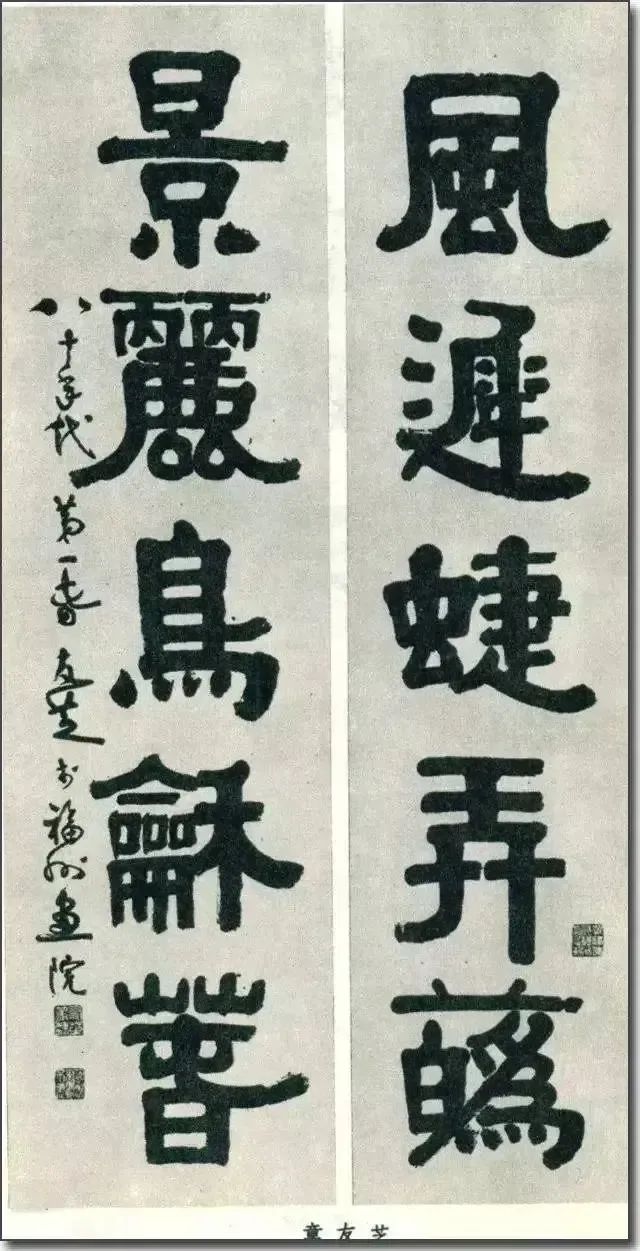 風遲蜨弄蘤
景麗鳥龢萅
八十年代第一春友芝书福州画院
章友芝